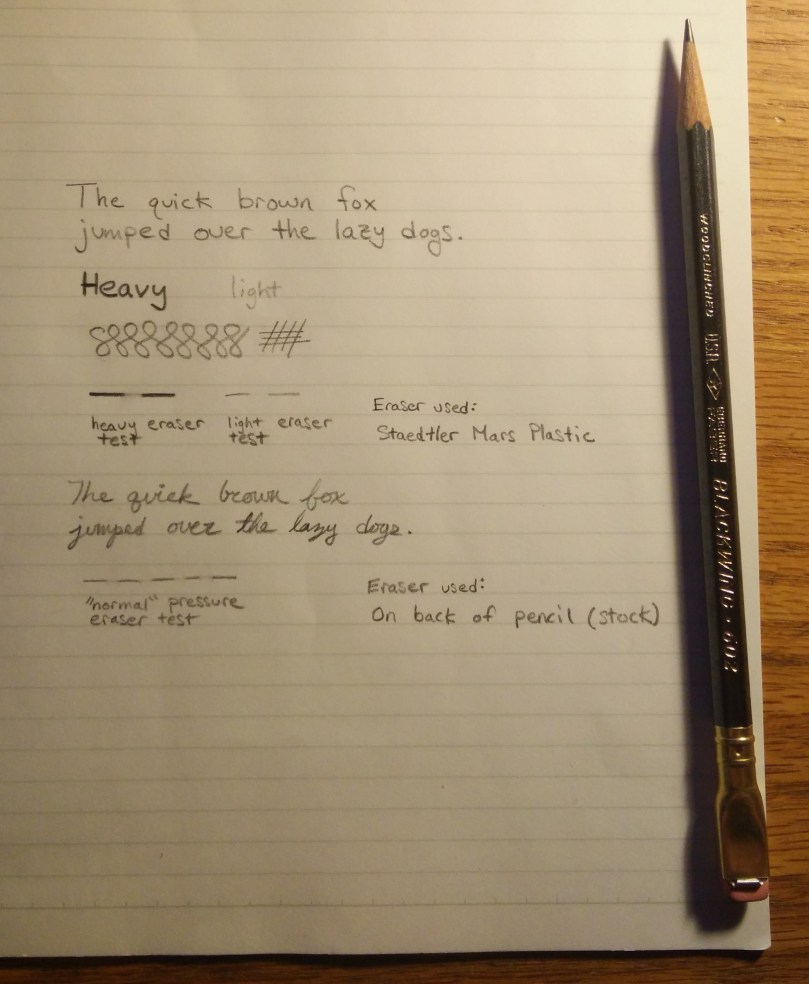 The quick brown fox
jumped over the lazy dogs.
Heavy light
heavy eraser test
light eraser test
Eraser used:
Staedtler Mars Plastic
The quick brown fox
jumped over the lazy dogs.
"normal" pressure
eraser test
Eraser used:
On back of pencil (stock)
WOODCLINCHED USA EBERHARD FABER BLACKWING · 602